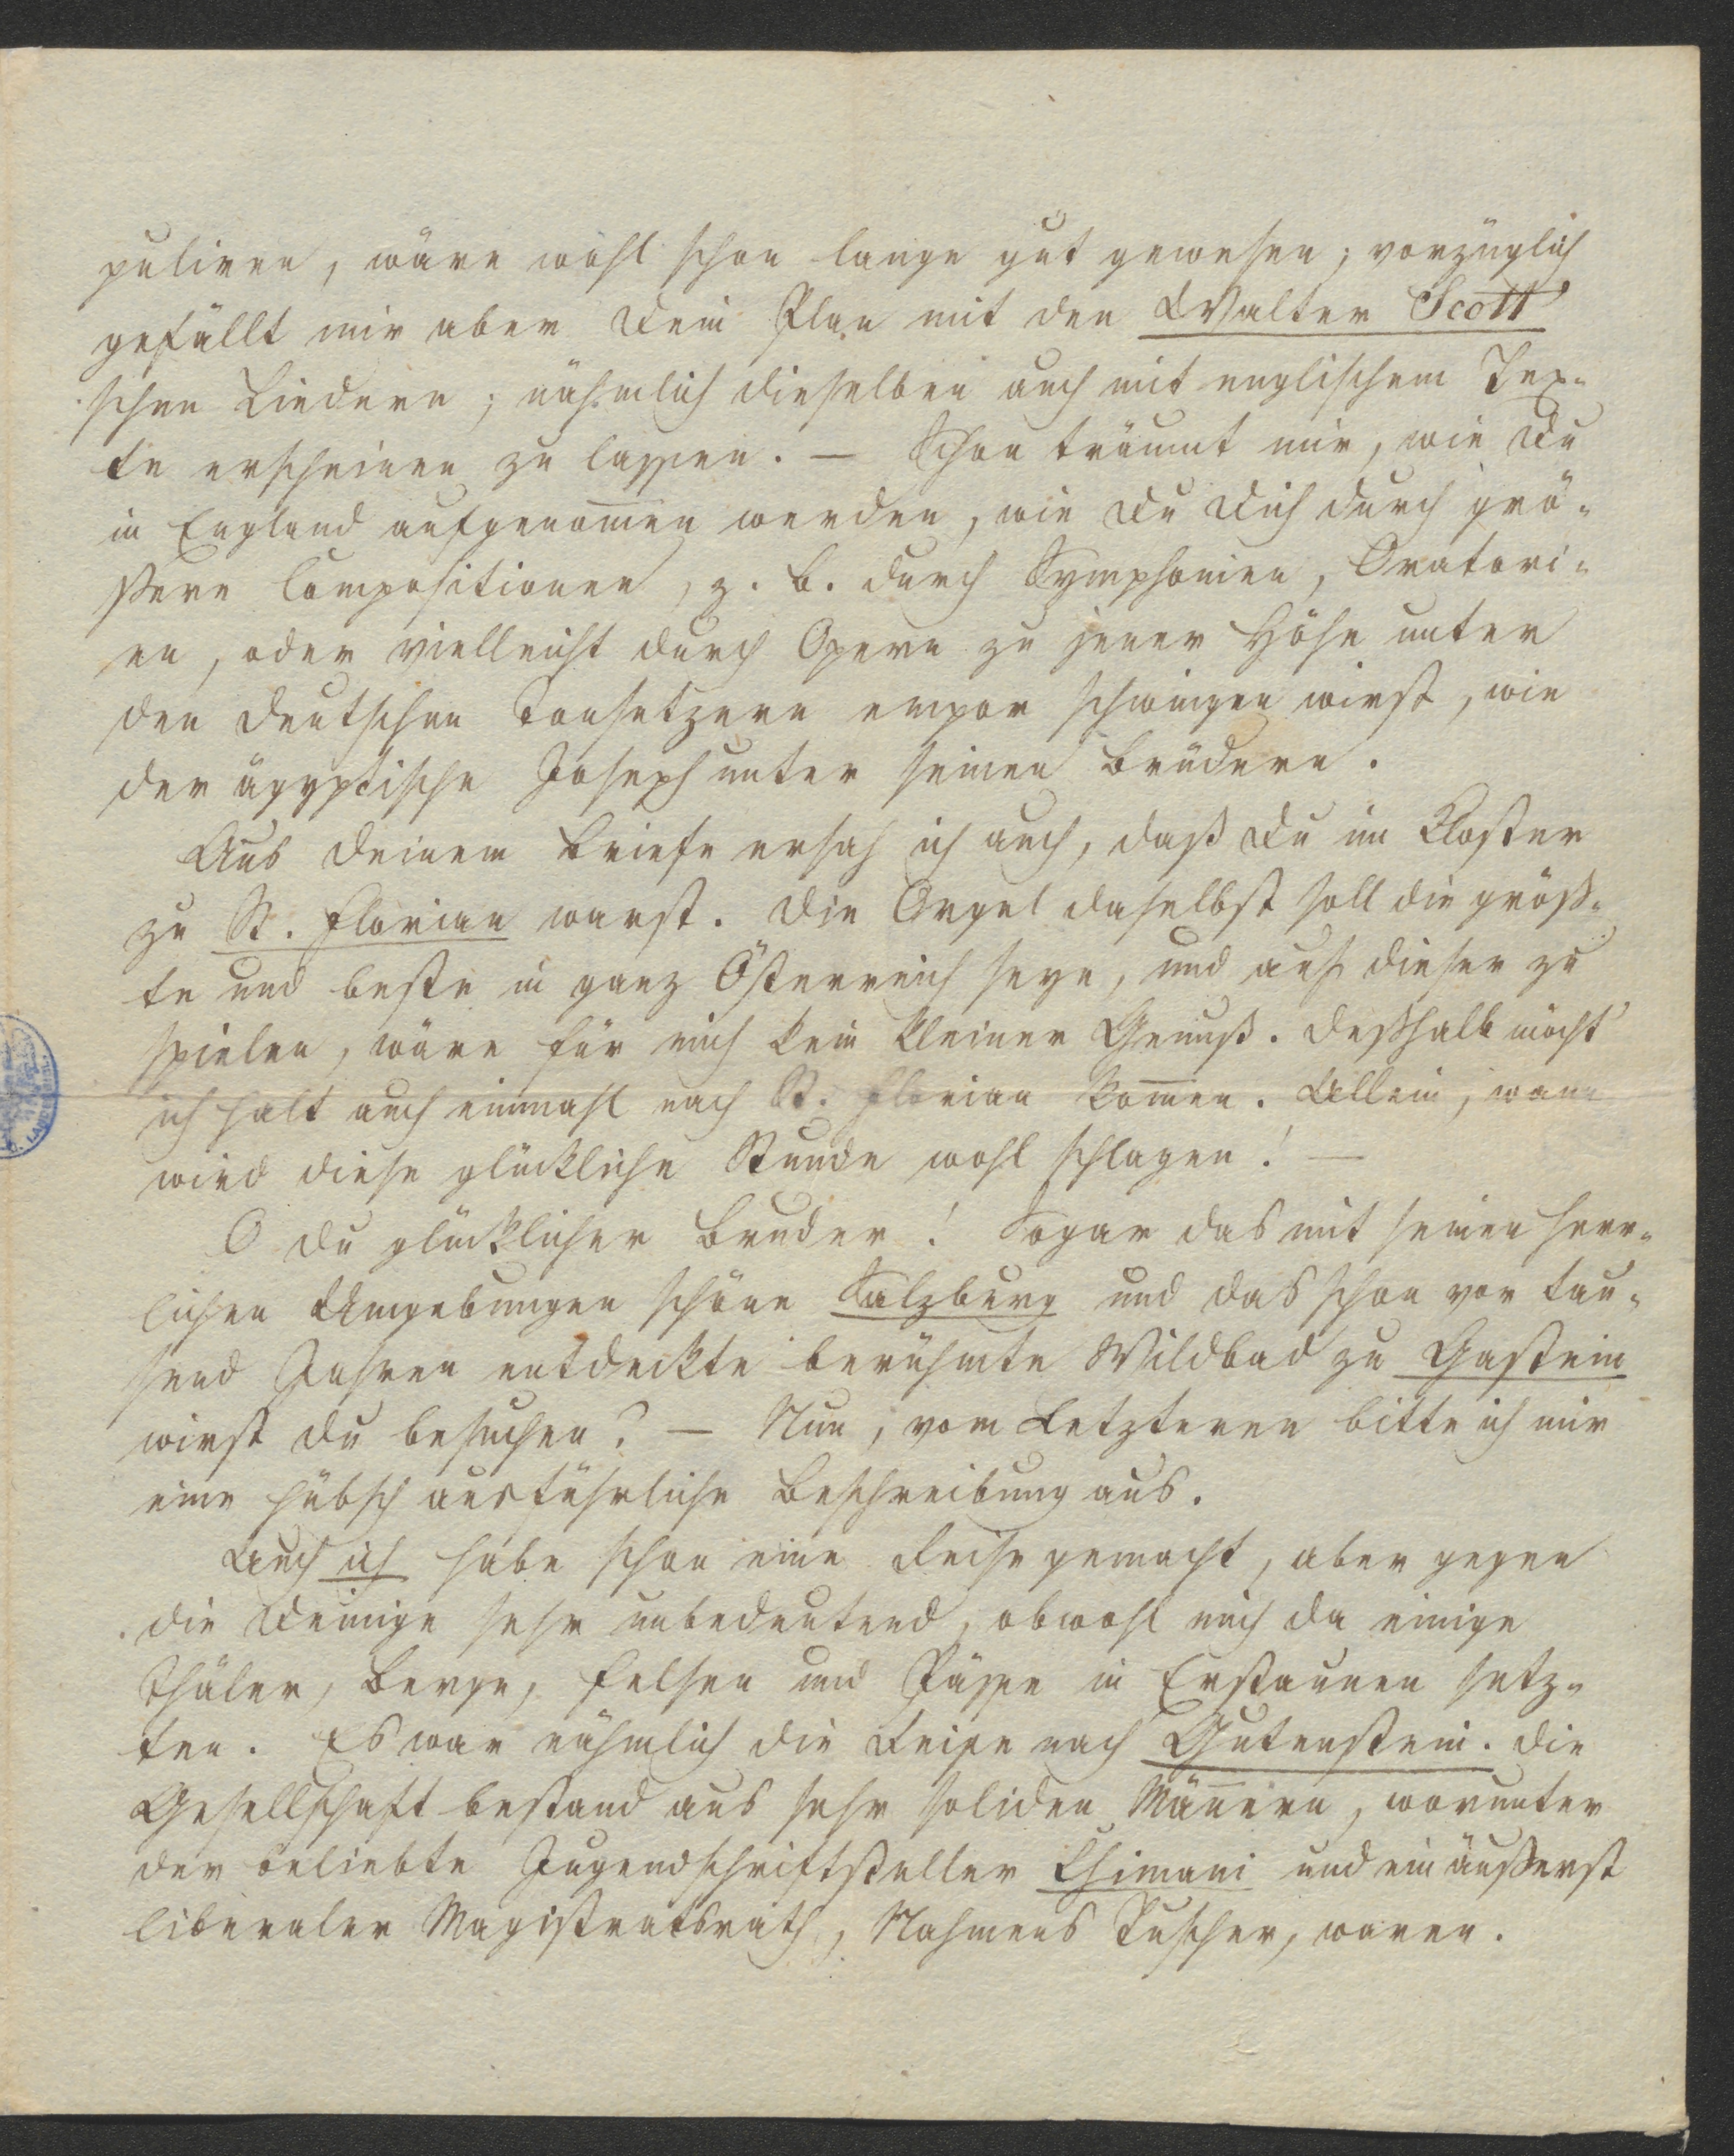 puliren, wäre wohl schon lange gut gewesen; vorzüglich
gefällt mir aber Dein Plan mit den Walter Scott'
schen Liedern; nähmlich dieselben auch mit englischem Tex-
te erscheinen zu lassen. — Schon träumt mir, wie Du
in England aufgenom̅en werden, wie Du Dich durch grö-
ßere Compositionen, z. B. durch Symphonien, Oratori-
en, oder vielleicht durch Opern zu jener Höhe unter
den deutschen Tonsetzern empor schwingen wirst, wie
der ägyptische Joseph unter seinen Brüdern.
Aus Deinem Briefe ersah ich auch, daß Du im Kloster
zu St. Florian warst. Die Orgel daselbst soll die größ-
te und beste in ganz Österreich seyn, und auf dieser zu
spielen, wäre für mich kein kleiner Genuß. Deßhalb möcht'
ich halt auch einmahl nach St. Florian kom̅en. Allein, wann
wird diese glückliche Stunde wohl schlagen! —
O Du glücklicher Bruder! Sogar das mit seinen herr-
lichen Umgebungen schöne Salzburg und das schon vor tau-
send Jahren entdeckte berühmte Wildbad zu Gastein
wirst Du besuchen? — Nun, vom Letzteren bitte ich mir
eine hübsch ausführliche Beschreibung aus.
Auch ich habe schon eine Reise gemacht, aber gegen
die Deinige sehr unbedeutend, obwohl mich da einige
Thäler, Berge, Felsen und Päße in Erstaunen setz-
ten. Es war nähmlich die Reise nach Gutenstein. Die
Gesellschaft bestand aus sehr soliden Män̅ern, worunter
der beliebte Jugendschriftsteller Chimani und ein äußerst
liberaler Magistratsrath, Nahmens Tuscher, waren.